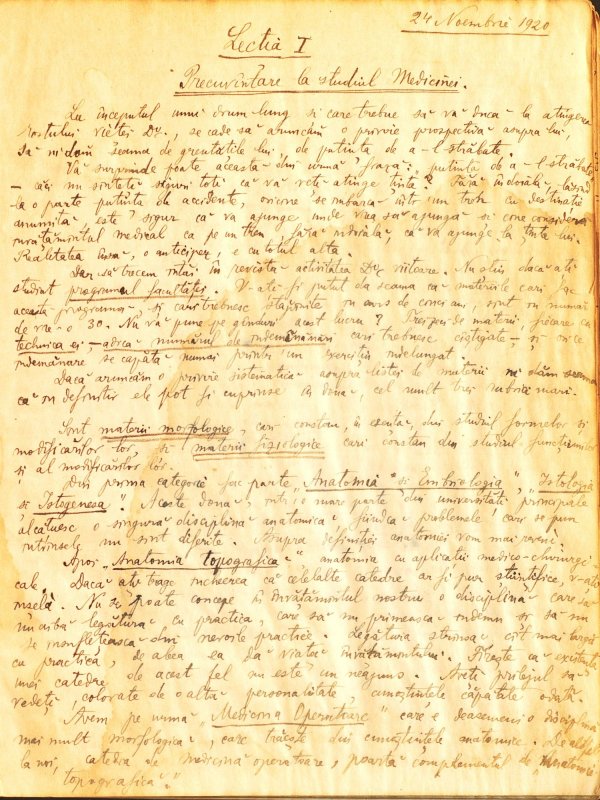 24 Noembrie 1920
Lecția I
Precuvîntare la studiul Medicinei.
La începutul unui drum lung și care trebue să vă ducă la atingerea
rostului vieței Dv., se cade să aruncăm o privire prospectivă asupra lui,
să ne dăm seama de greutățile lui, de putința de a-l străbate.
Vă surprinde poate aceasta din urmă frază: „putința de a-l străbate"
— căci nu sînteți siguri toți că vă veți atinge ținta? Fără îndoială, lăsînd
la o parte putința de accidente, oricine se îmbarcă într'un tren cu destinație
anumită este sigur că va ajunge unde vrea să ajungă și cine consideră
învățămîntul medical ca pe un tren, fără îndoială, că va ajunge la ținta lui.
Realitatea însă, o anticipez, e cu totul alta.
Dar să trecem întâi în revistă activitatea Dv. viitoare. Nu știu dacă ați
studiat programul facultăței. V-ați fi putut da seama că materiile cari fac
aceasta programă, și cari trebuesc în curs de cinci ani, sînt în număr
de vre-o 30. Nu vă pune pe gînduri acest lucru? Treizeci de materii, fiecare cu
technica ei, — adică numărul de îndemânări cari trebuesc cîștigate — și orice
îndemânare se capătă numai printr'un exercițiu îndelungat.
Dacă aruncăm o privire sistematică asupra listei de materii ne dăm seama
că în definitiv ele pot fi cuprinse în două, cel mult trei rubrici mari.
Sînt materii morfologice, cari constau, în esență, din studiul formelor și
modificărilor lor, și materii fiziologice cari constau din studiul funcțiunilor
și al modificărilor lor.
Din prima categorie fac parte „Anatomia" și Embriologia", „Istologia
și Istogenesa". Aceste două, într'o mare parte din universități principale
alcătuesc o singură disciplină anatomică fiindcă problemele cari se pun
într'însele nu sînt diferite. Asupra definiției anatomiei vom mai reveni.
Apoi „Anatomia topografică" anatomia cu aplicații medico-chirurgi-
cale. Dacă ați trage încheerea că celelalte catedre ar fi pur științifice, v-ați
înșela. Nu se poate concepe în învățămîntul nostru o disciplină care să
nu aibă legătură cu practica, care să nu primească îndemn și să nu
se însuflețească din nevoile practice. Legătura strînsă, cît mai largă
cu practica, de aceea ea dă viață învățămîntului. Firește că existența
unei catedre de acest fel nu este un neajuns. Aveți prilejul să
vedeți colorate de o altă personalitate, cunoștințele căpătate odată.
Avem pe urmă „Medicina Operatoare" care e deasemeni o disciplină
mai mult morfologică, care trăește din cunoștințele anatomice. De altfel
la noi, catedra de medicină operatoare, poartă complementul de „Anatomie
topografică".